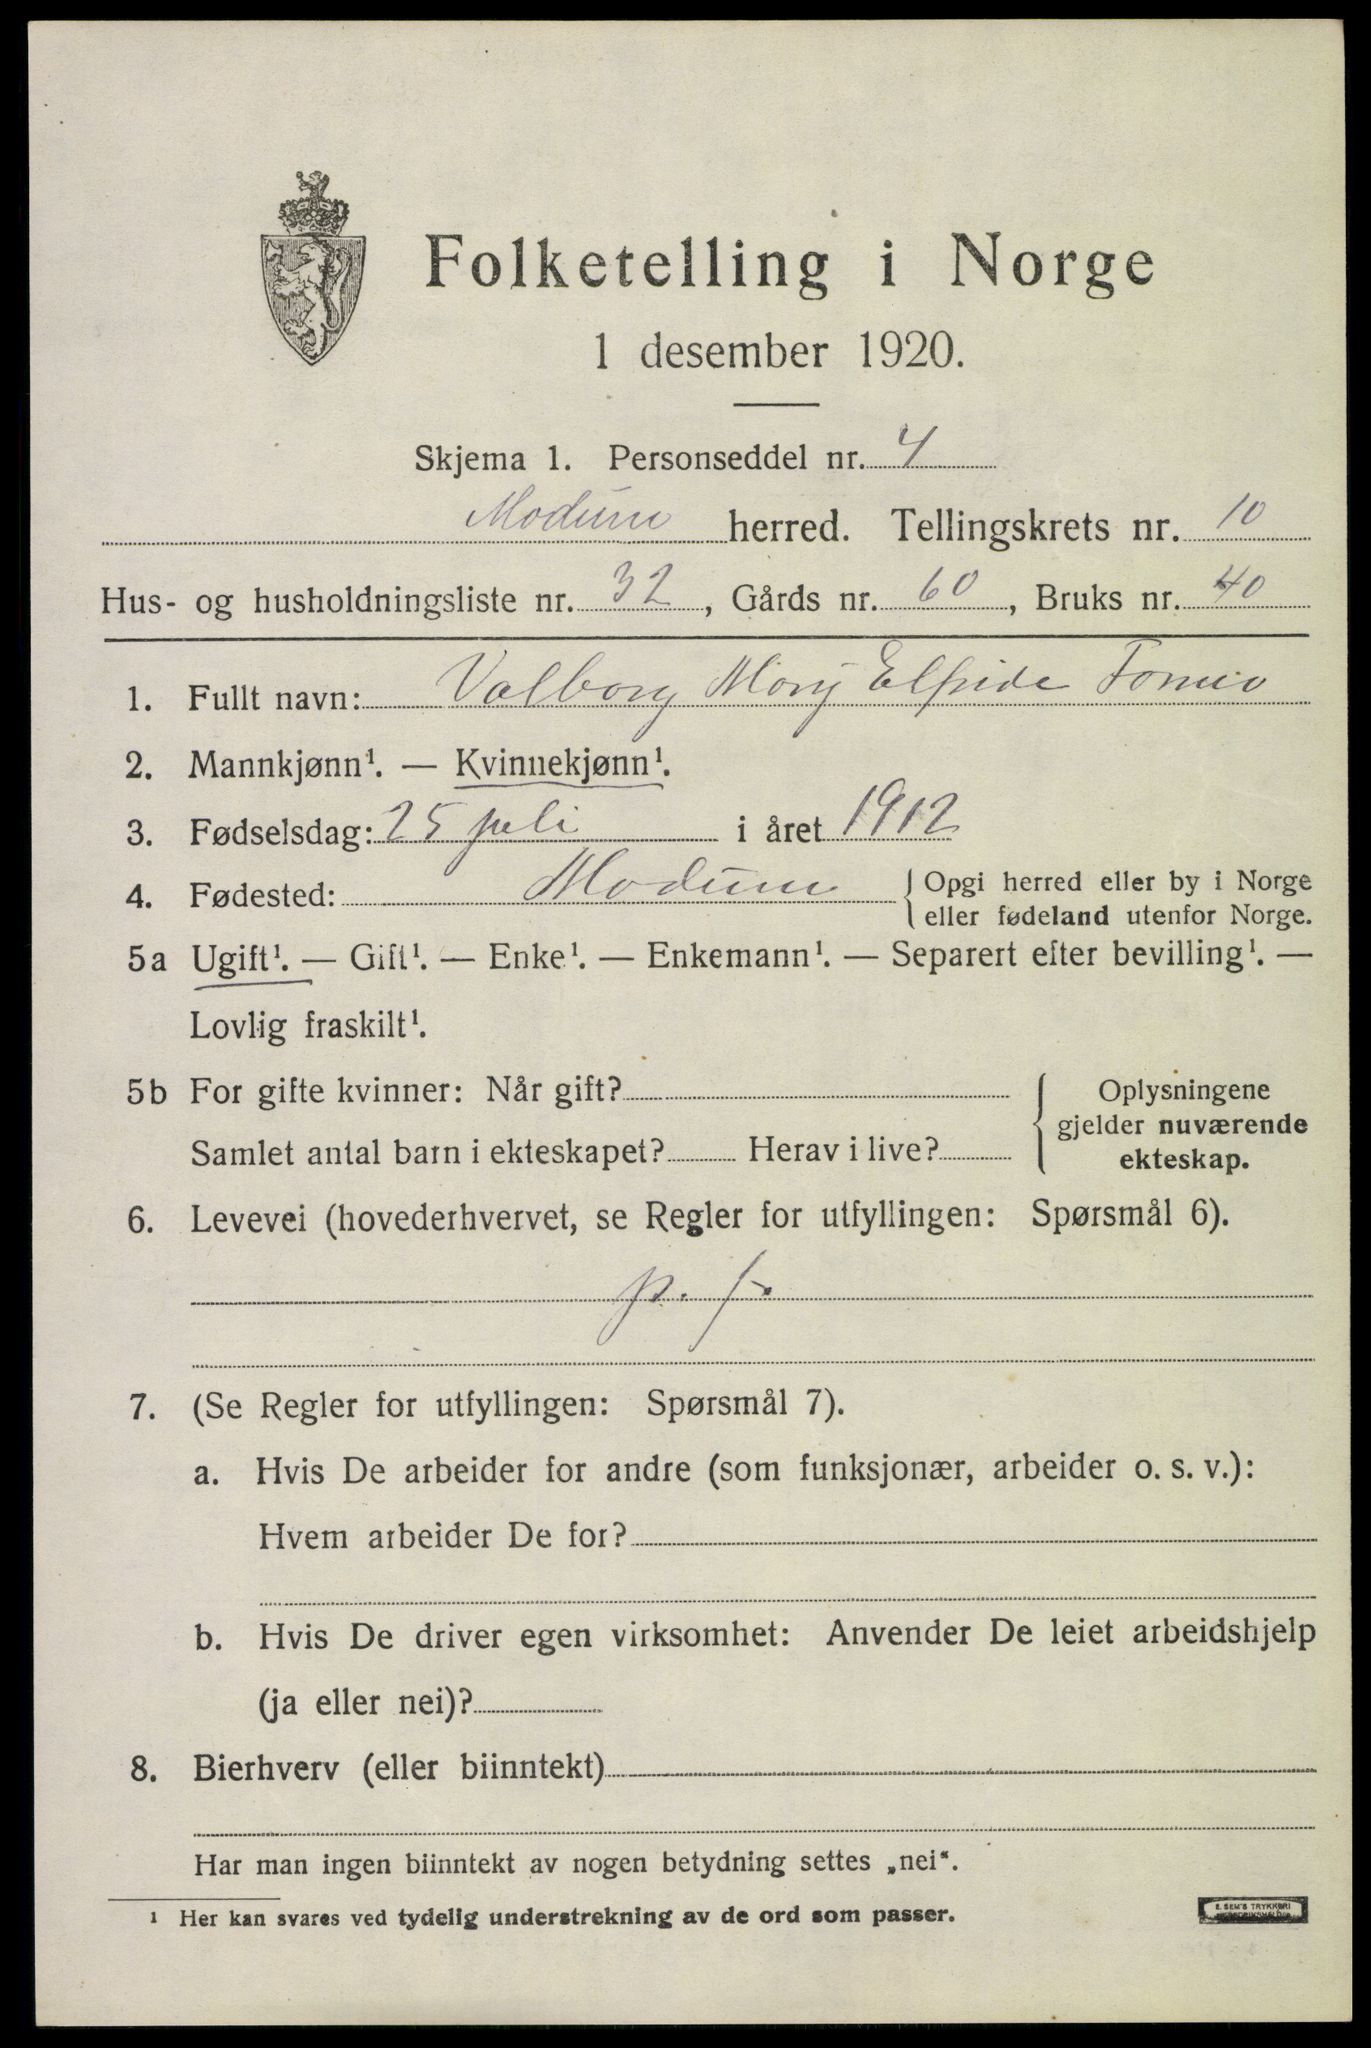 Folketelling i Norge
1 desember 1920.
Skjema 1. Personseddel nr. 4
Modum herred. Tellingskrets nr. 10
Hus- og husholdningsliste nr. 32, Gårds nr. 60, Bruks nr. 40
1. Fullt navn: Valborg Mary Elfride
2. Mannkjønn¹. — Kvinnekjønn¹.
3. Fødselsdag: 25 juli i året 1912
4. Fødested: Modum { Opgi herred eller by i Norge
eller fødeland utenfor Norge.
5a Ugift¹. — Gift¹. — Enke¹. — Enkemann¹. — Separert efter bevilling¹. —
Lovlig fraskilt¹.
5b For gifte kvinner: Når gift? { Oplysningene
gjelder nuværende
Samlet antal barn i ekteskapet? Herav i live? ekteskap.
6. Levevei (hovederhvervet, se Regler for utfyllingen: Spørsmål 6).
p. f.
7. (Se Regler for utfyllingen: Spørsmål 7).
a. Hvis De arbeider for andre (som funksjonær, arbeider o. s. v.):
Hvem arbeider De for?
b. Hvis De driver egen virksomhet: Anvender De leiet arbeidshjelp
(ja eller nei)?
8. Bierhverv (eller biinntekt)
Har man ingen biinntekt av nogen betydning settes „nei“.
¹ Her kan svares ved tydelig understrekning av de ord som passer.
E. SEM'S TRYKKERI